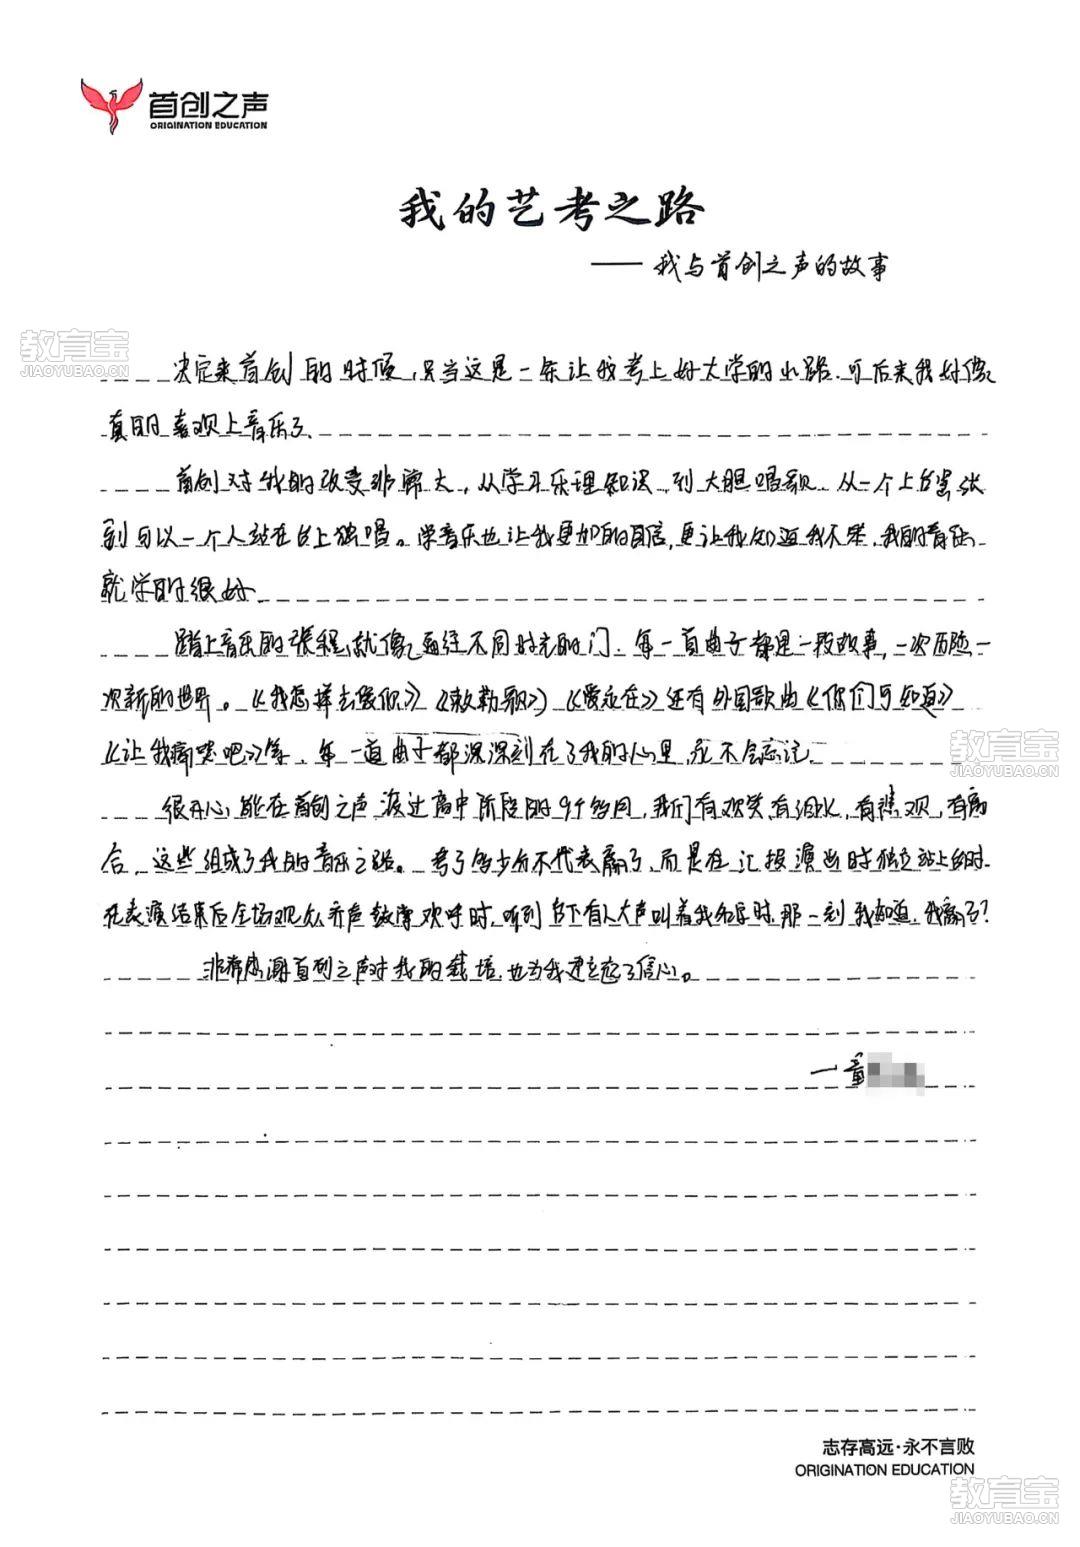 首创之声
ORIGINATION EDUCATION
我的艺考之路
——我与首创之声的故事
教育宝
JIAOYUBAO.CN
决定来首创的时候,只当这是一条让我考上好大学的小路.可后来我好像
真的喜欢上音乐了.
首创对我的改变非常大,从学习乐理知识,到大胆唱歌.从一个上台紧张
到可以一个人站在台上独唱。学音乐也让我更加的自信,更让我知道我不笨,我的音乐
就学的很好.
踏上音乐的张程,就像通往不同时光的门.每一首曲子都是一段故事,一次历险一
次新的世界。《我怎样去爱你》《敕勒歌》《爱永在》还有外国歌曲《你们可知道》
《让我痛哭吧》等,每一道曲子都深深刻在了我的心里,永不会忘记.
教育宝
JIAOYUBAO.CN
很开心能在首创之声渡过高中阶段的9个多月,我们有欢笑,有泪水,有悲观,有离
合,这些组成了我的音乐之路。考了多少分不代表赢了,而是在汇报演出时独立站上台时.
在表演结束后全场观众齐声鼓掌欢呼时,听到台下有人大声叫着我名字时,那一刻我知道,我赢了?
非常感谢首创之声对我的栽培,也为我建立起了信心。
一童
志存高远·永不言败
ORIGINATION EDUCATION
教育宝
JIAOYUBAO.CN